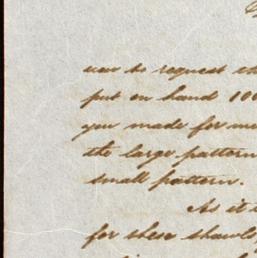 now to request th
put on hand 100
you made for me
the large pattern
small pattern.
As it i
for these shawls